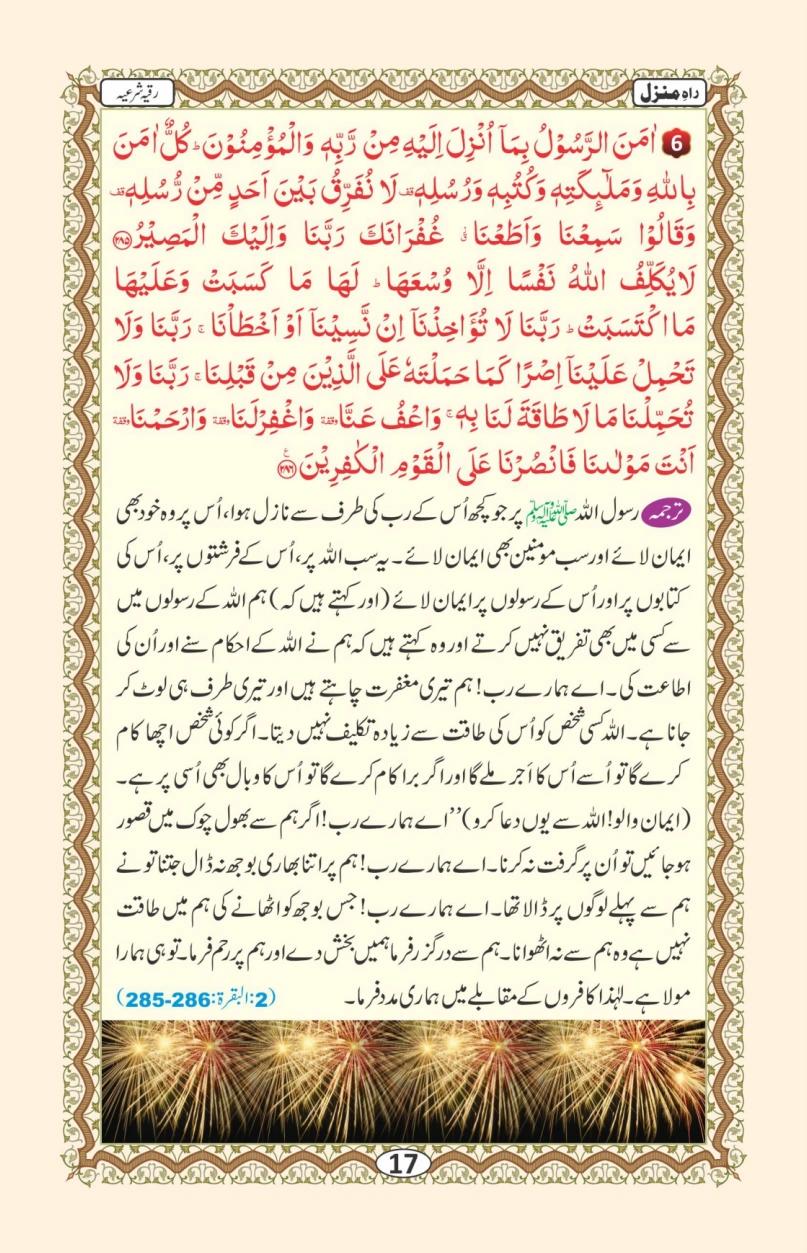 راہِ منزل
رقیہ شرعیہ
6 اٰمَنَ الرَّسُوْلُ بِمَآ اُنْزِلَ اِلَیْهِ مِنْ رَّبِّهٖ وَالْمُؤْمِنُوْنَ ؕ كُلٌّ اٰمَنَ
بِاللّٰهِ وَمَلٰٓىِٕكَتِهٖ وَكُتُبِهٖ وَرُسُلِهٖ قف لَا نُفَرِّقُ بَیْنَ اَحَدٍ مِّنْ رُّسُلِهٖ قف
وَقَالُوْا سَمِعْنَا وَاَطَعْنَا ؗ غُفْرَانَكَ رَبَّنَا وَاِلَیْكَ الْمَصِیْرُ ﴿۲۸۵﴾
لَایُكَلِّفُ اللّٰهُ نَفْسًا اِلَّا وُسْعَهَا ؕ لَهَا مَا كَسَبَتْ وَعَلَیْهَا
مَا اكْتَسَبَتْ ؕ رَبَّنَا لَا تُؤَاخِذْنَاۤ اِنْ نَّسِیْنَاۤ اَوْ اَخْطَاْنَا ۚ رَبَّنَا وَلَا
تَحْمِلْ عَلَیْنَاۤ اِصْرًا كَمَا حَمَلْتَهٗ عَلَی الَّذِیْنَ مِنْ قَبْلِنَا ۚ رَبَّنَا وَلَا
تُحَمِّلْنَا مَا لَا طَاقَةَ لَنَا بِهٖ ۚ وَاعْفُ عَنَّا وقفة وَاغْفِرْلَنَا وقفة وَارْحَمْنَا وقفة
اَنْتَ مَوْلٰىنَا فَانْصُرْنَا عَلَی الْقَوْمِ الْكٰفِرِیْنَ ﴿۲۸۶﴾ ع
ترجمہ رسول اللہ ﷺ پر جو کچھ اُس کے رب کی طرف سے نازل ہوا، اُس پر وہ خود بھی
ایمان لائے اور سب مومنین بھی ایمان لائے۔ یہ سب اللہ پر، اُس کے فرشتوں پر، اُس کی
کتابوں پر اور اُس کے رسولوں پر ایمان لائے (اور کہتے ہیں کہ) ہم اللہ کے رسولوں میں
سے کسی میں بھی تفریق نہیں کرتے اور وہ کہتے ہیں کہ ہم نے اللہ کے احکام سنے اور اُن کی
اطاعت کی۔ اے ہمارے رب! ہم تیری مغفرت چاہتے ہیں اور تیری طرف ہی لوٹ کر
جانا ہے۔ اللہ کسی شخص کو اُس کی طاقت سے زیادہ تکلیف نہیں دیتا۔ اگر کوئی شخص اچھا کام
کرے گا تو اُسے اُس کا اَجر ملے گا اور اگر برا کام کرے گا تو اُس کا وبال بھی اُسی پر ہے۔
(ایمان والو! اللہ سے یوں دعا کرو) ’’اے ہمارے رب! اگر ہم سے بھول چوک میں قصور
ہو جائیں تو اُن پر گرفت نہ کرنا۔ اے ہمارے رب! ہم پر اتنا بھاری بوجھ نہ ڈال جتنا تو نے
ہم سے پہلے لوگوں پر ڈالا تھا۔ اے ہمارے رب! جس بوجھ کو اٹھانے کی ہم میں طاقت
نہیں ہے وہ ہم سے نہ اٹھوانا۔ ہم سے درگزر فرما ہمیں بخش دے اور ہم پر رحم فرما۔ تو ہی ہمارا
مولا ہے۔ لہٰذا کافروں کے مقابلے میں ہماری مدد فرما۔ (2:البقرة:286-285)
17